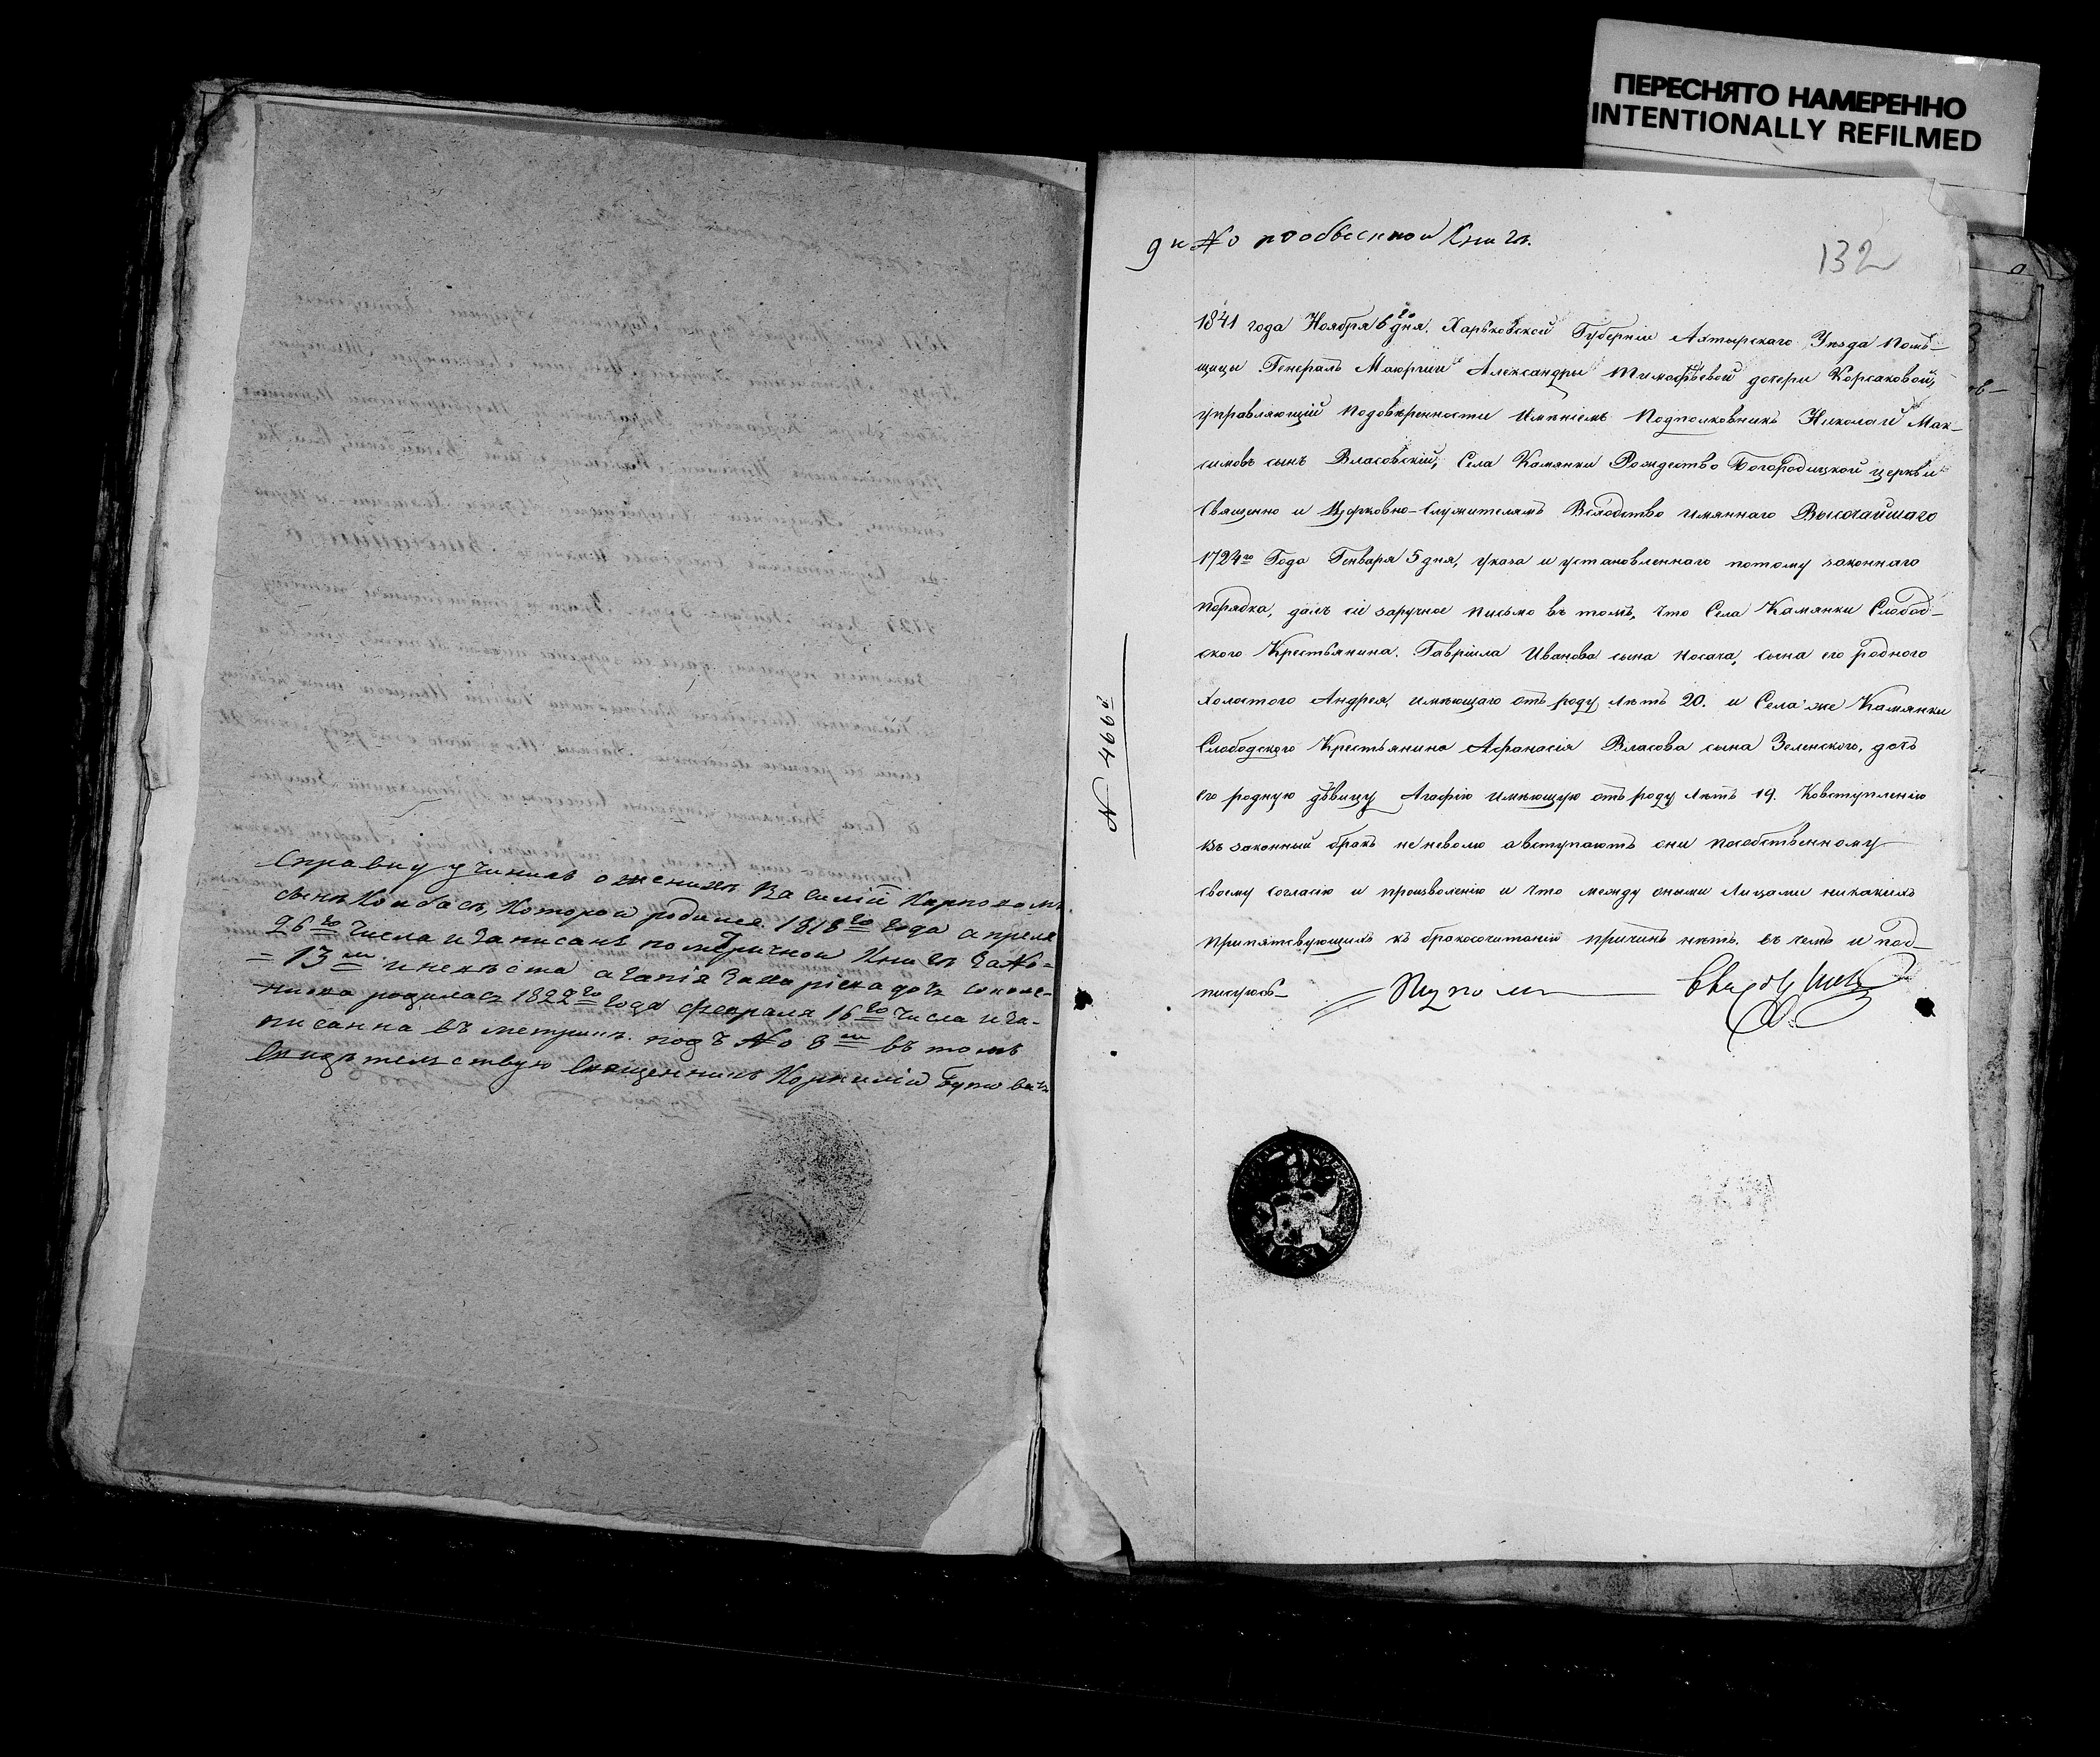 ПЕРЕСНЯТО НАМЕРЕННО
INTENTIONALLY REFILMED
Справку учинилъ о женихѣ Василій Карповъ
сынъ Колбасъ, которой родился 1818го года апреля
26го числа и записанъ по метричной книгѣ за No
= 13м и невѣста агапія Захаріева дочь
родилась 1822го года февраля 16го числа и за-
писанна въ метрикѣ подъ No 8м въ томъ
свидѣтельствую Священникъ Корнилій
9й No по обыскной Книгѣ.
132
1841 года Ноября 6го дня. Харьковской Губерніи Ахтырскаго Уѣзда Помѣ-
щицы Генералъ Маіоршии Александры Тимофѣевой дочери Корсаковой,
управляющій подовѣренности имѣніемъ Подполковникъ Николай Мак-
симовъ сынъ Власовскій, Села Камянки Рождество Богородицкой церкви
Священно и Церковно-Служителямъ Вслѣдство имяннаго Высочайшаго
1724го Года Генваря 5 дня, указа и установленнаго потому законнаго
порядка, далъ сіе заручное письмо въ томъ, что Села Камянки Слобод-
ского Крестьянина. Гавріила Иванова сына Носача, сына его родного
холостого Андрея, имѣющаго отъ роду лѣтъ 20. и Села же Камянки
Слободского Крестьянина Афанасія Власова сына Зеленского, дочь
его родную дѣвицу Агафію имѣющую отъ роду лѣтъ 19. Ковступленію
въ законный бракъ не неволю авступаютъ они пособственному
своему согласію и произволенію и что между оными лицами никакихъ
припятствующихъ къ бракосочитанію причинъ нѣтъ. въ чемъ и под-
писуюсь
N 466й